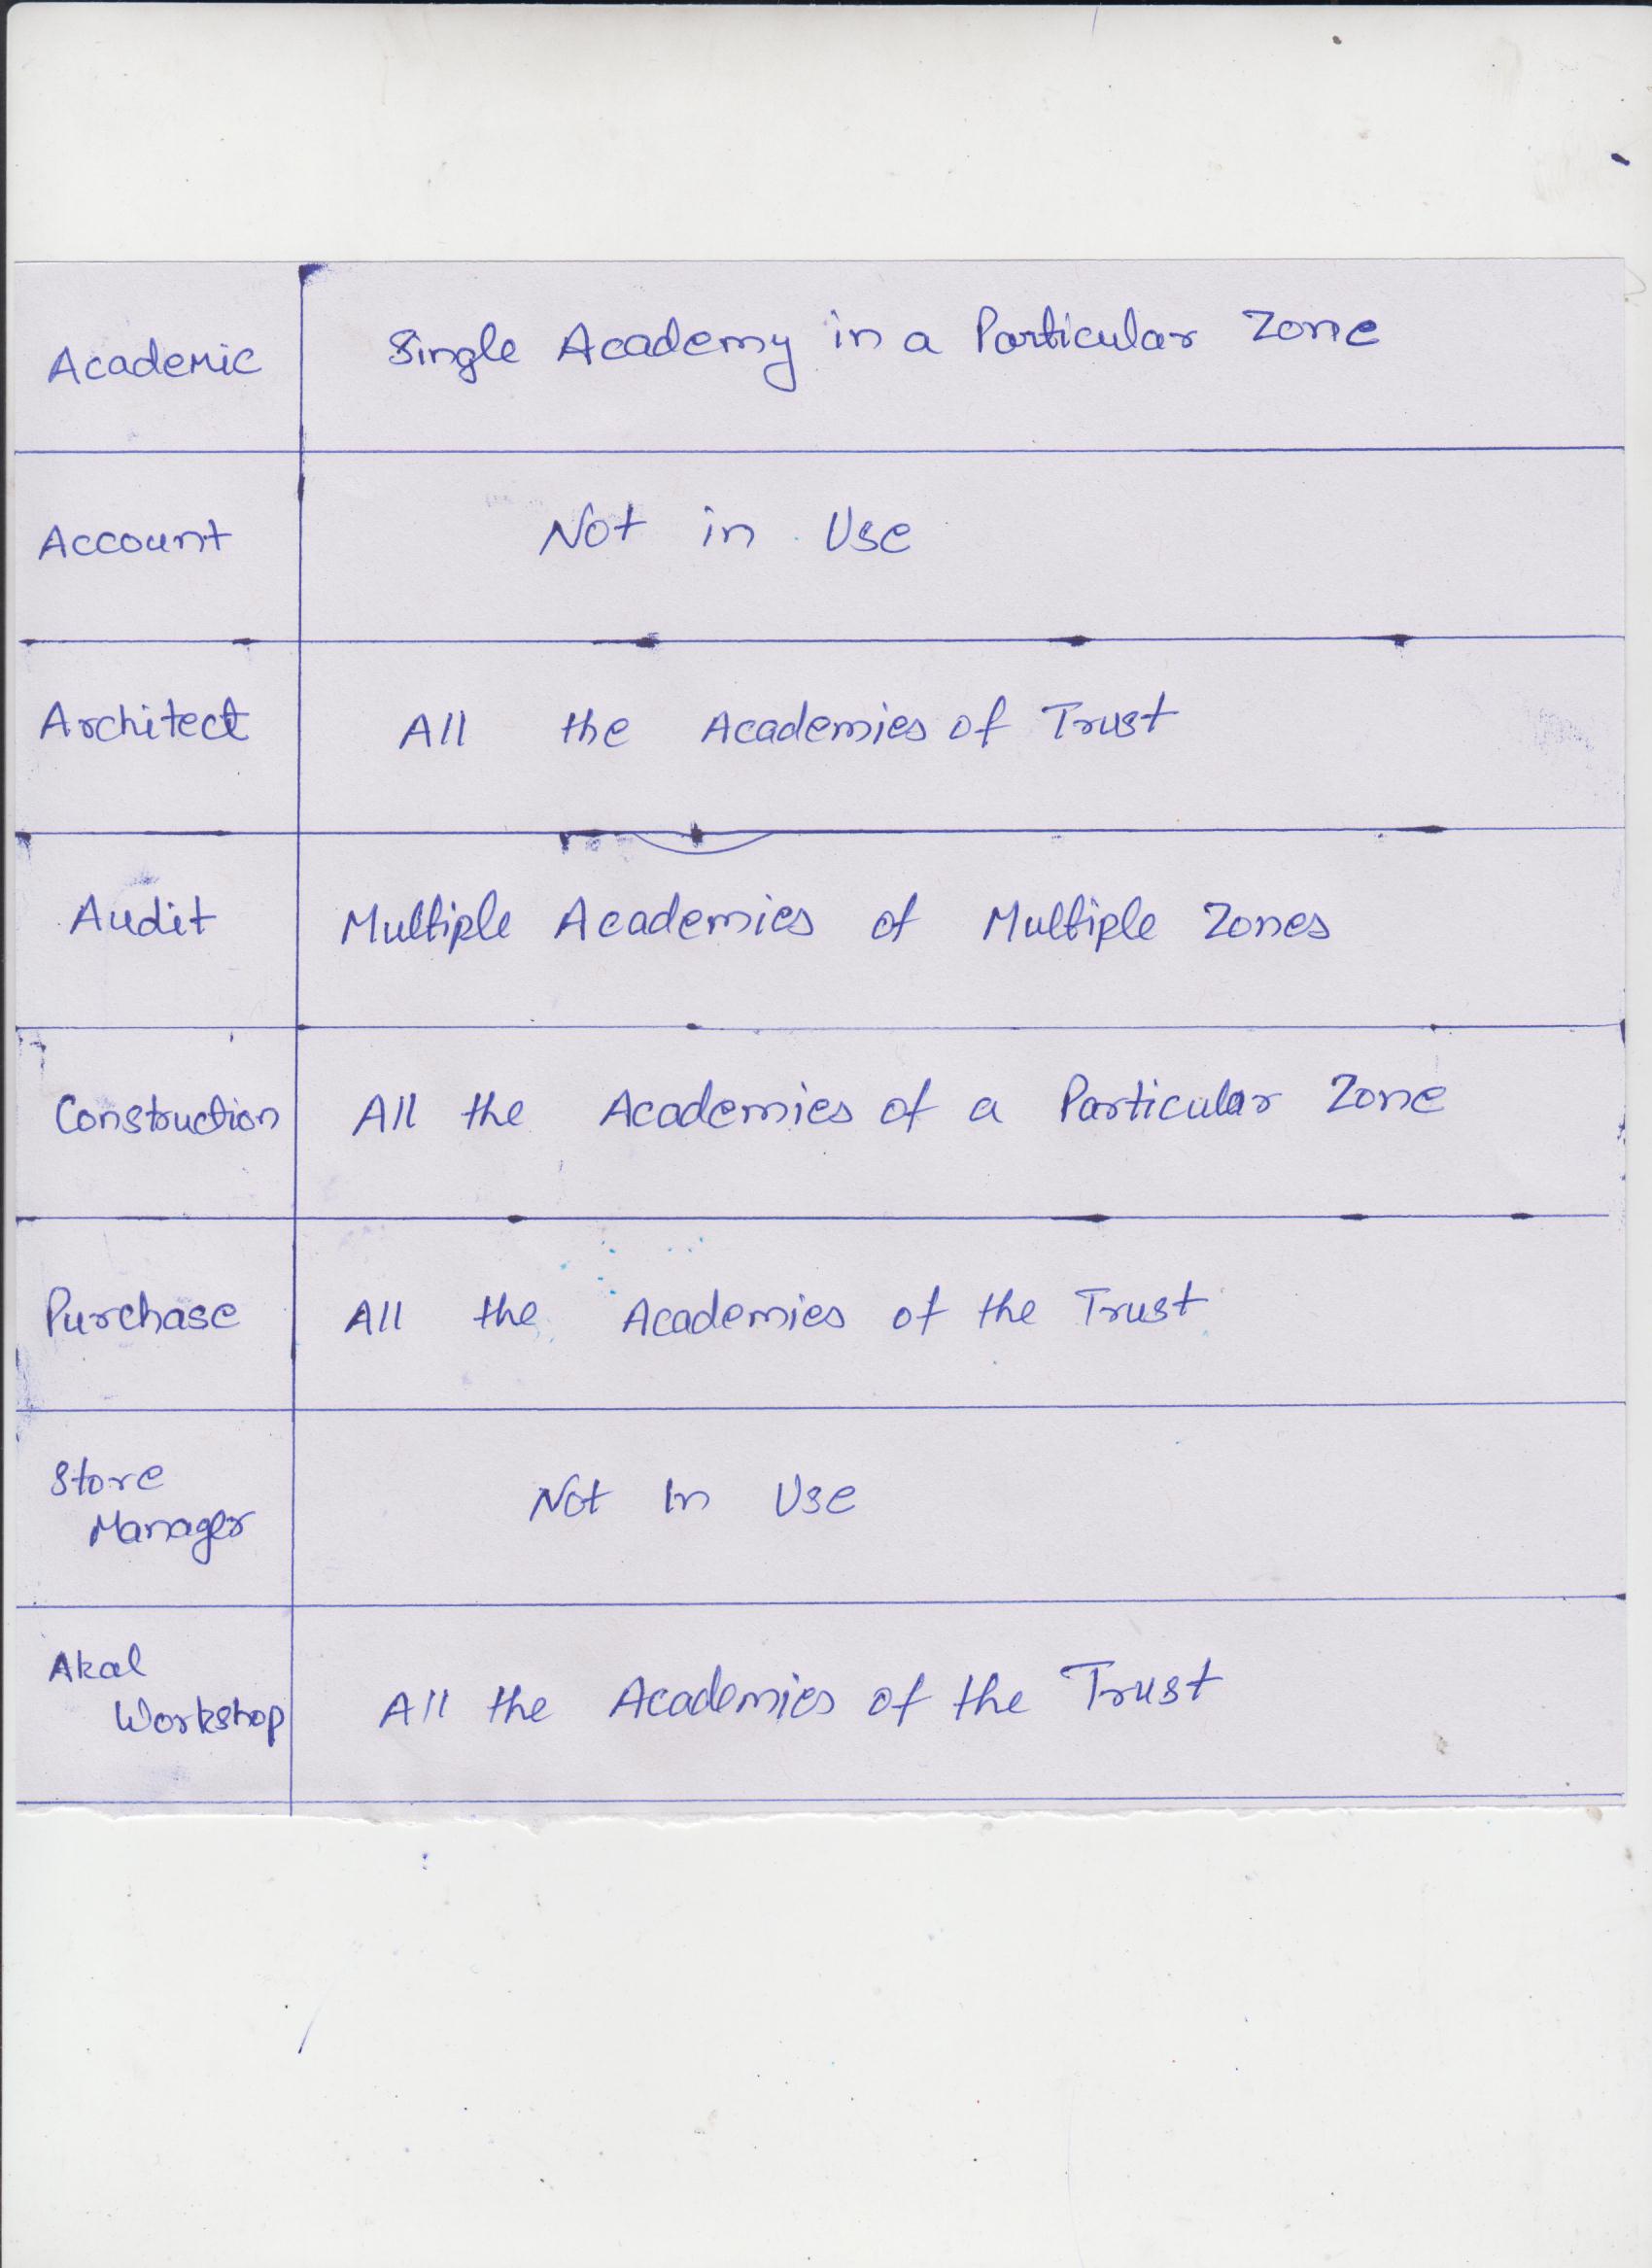 Academic Single Academy in a Particular Zone
Account Not in Use
Architect All the Academies of Trust
Audit Multiple Academies of Multiple Zones
Construction All the Academies of a Particular Zone
Purchase All the Academies of the Trust
Store
Manager Not In Use
Akal
Workshop All the Academies of the Trust